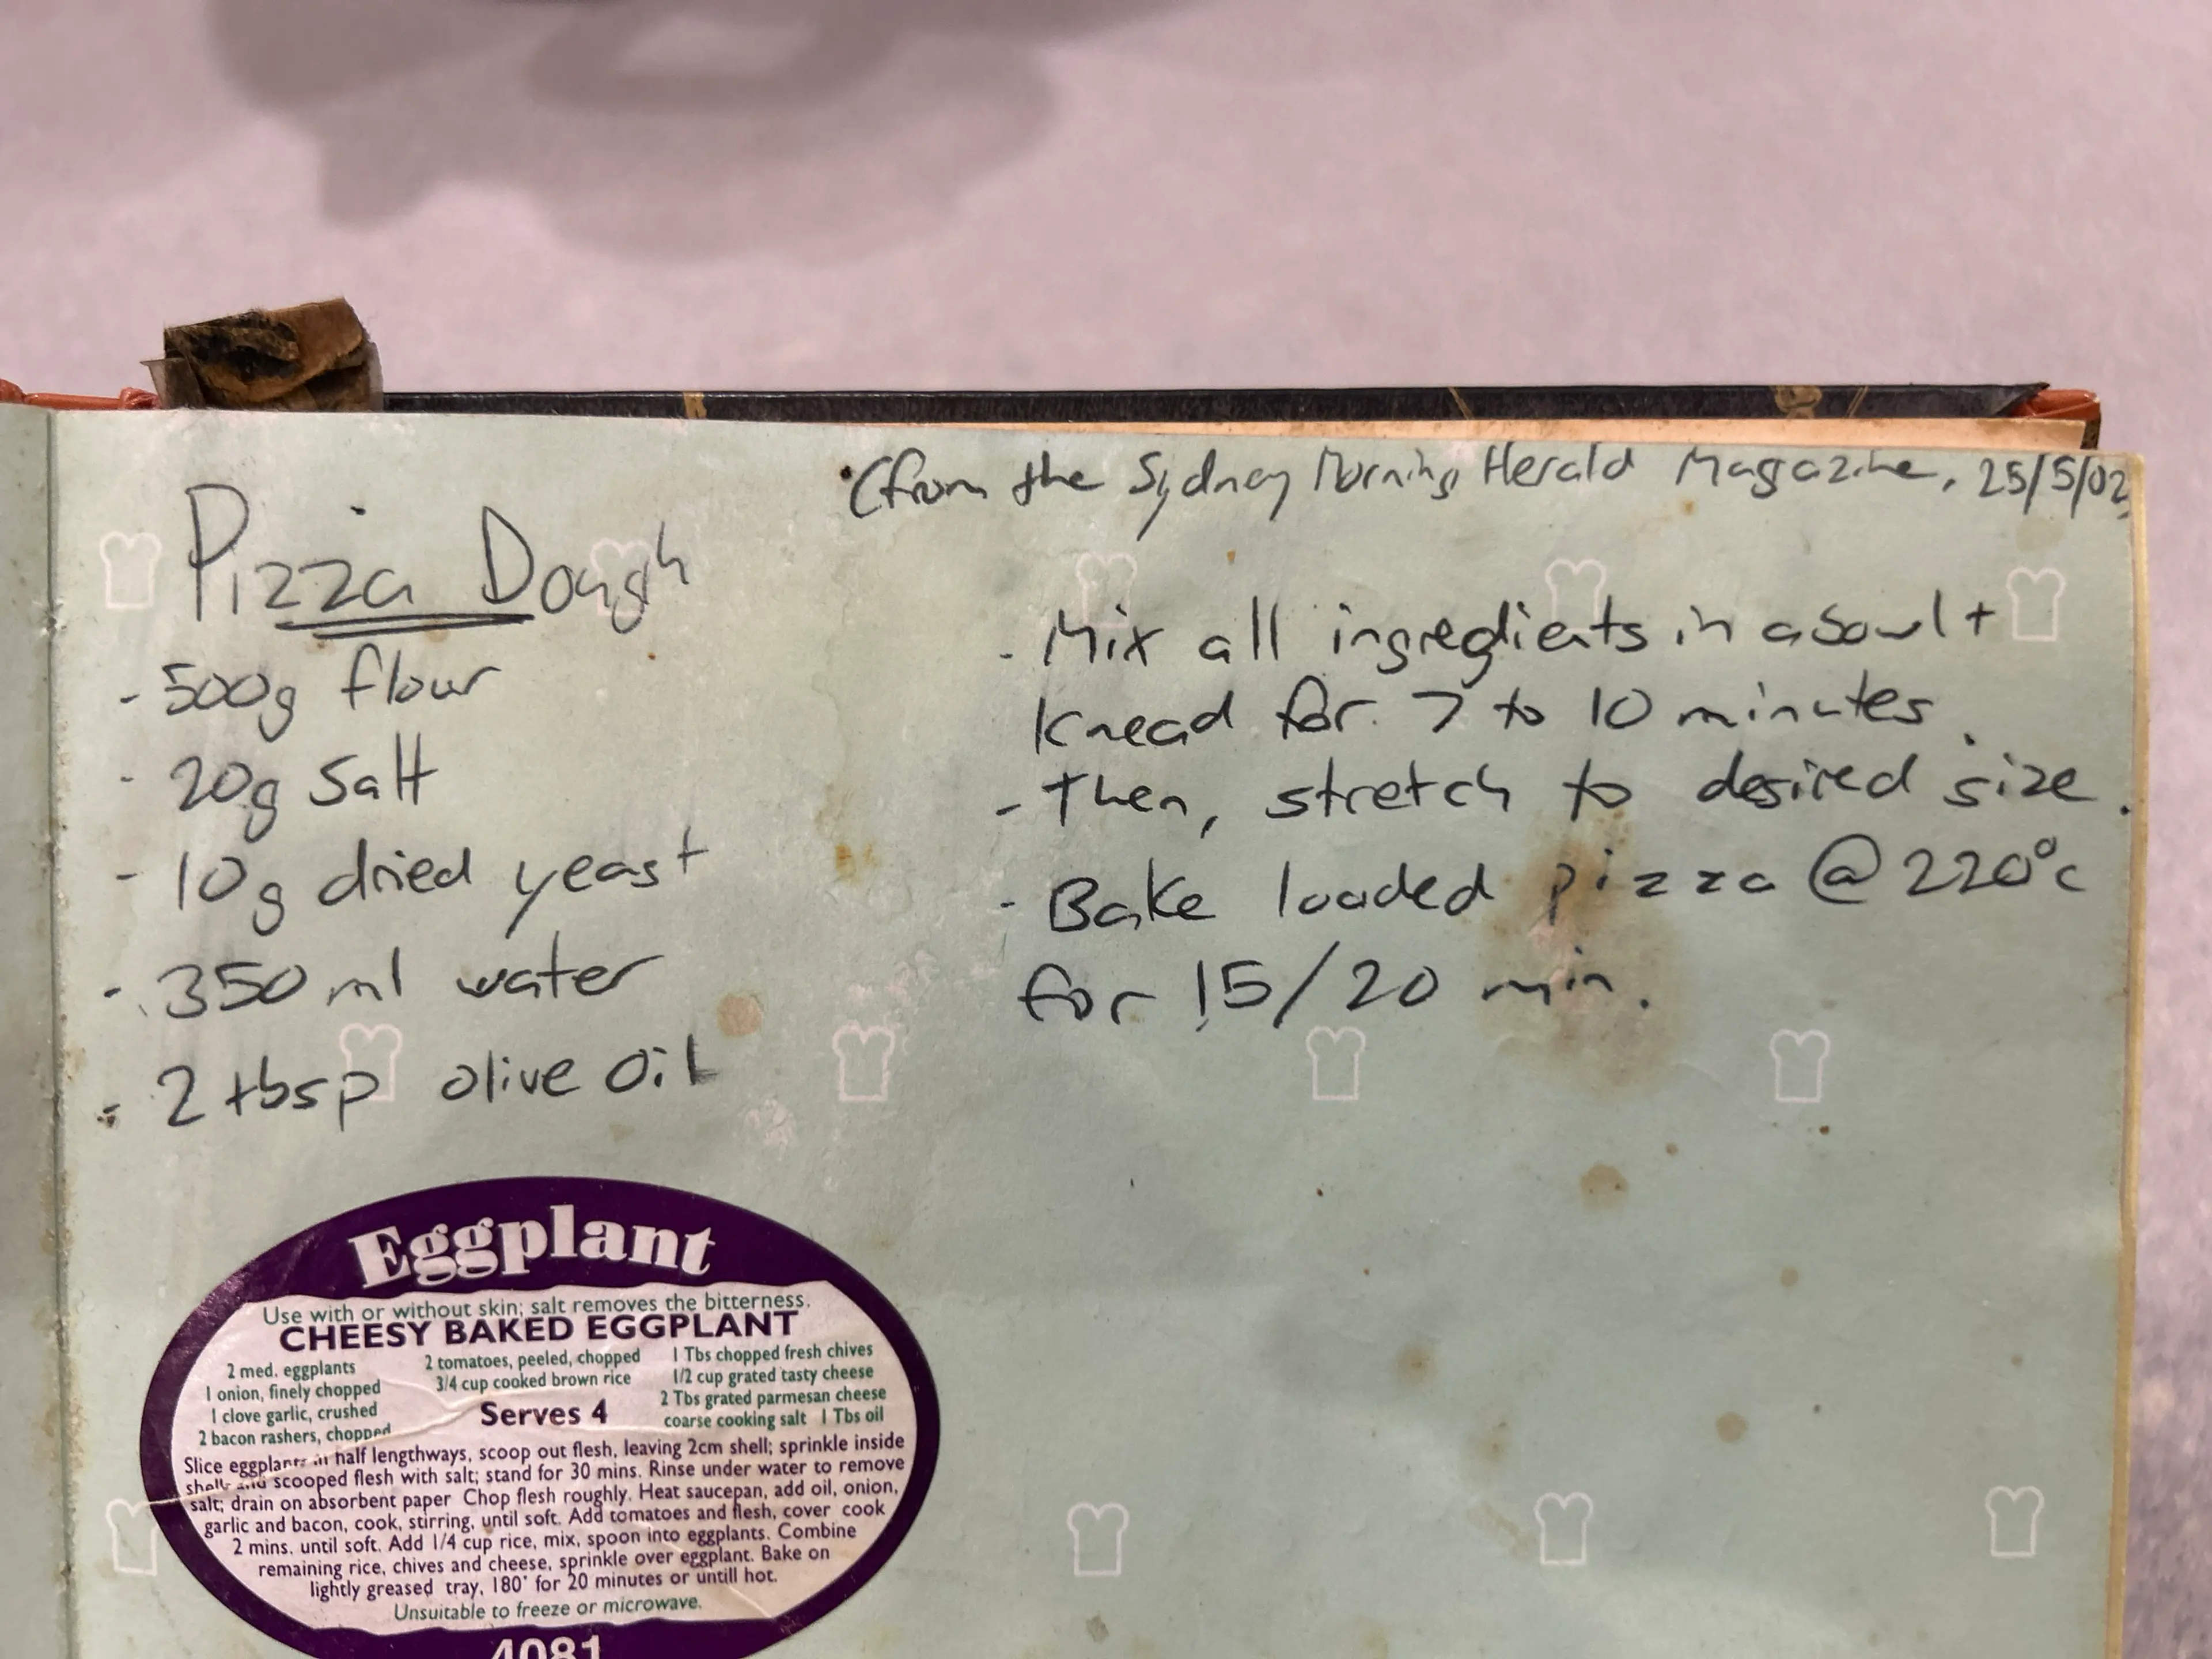 (from the Sydney Morning Herald Magazine, 25/5/02)
Pizza Dough
- 500g flour
- 20g Salt
- 10g dried yeast
- 350 ml water
- 2 tbsp olive oil
- Mix all ingredients in a bowl +
Knead for 7 to 10 minutes.
- Then, stretch to desired size.
- Bake loaded pizza @ 220°c
for 15/20 min.
Eggplant
Use with or without skin; salt removes the bitterness.
CHEESY BAKED EGGPLANT
2 med. eggplants
1 onion, finely chopped
1 clove garlic, crushed
2 bacon rashers, chopped
2 tomatoes, peeled, chopped
3/4 cup cooked brown rice
Serves 4
1 Tbs chopped fresh chives
1/2 cup grated tasty cheese
2 Tbs grated parmesan cheese
coarse cooking salt 1 Tbs oil
Slice eggplants in half lengthways, scoop out flesh, leaving 2cm shell; sprinkle inside
shells and scooped flesh with salt; stand for 30 mins. Rinse under water to remove
salt; drain on absorbent paper Chop flesh roughly. Heat saucepan, add oil, onion,
garlic and bacon, cook, stirring, until soft. Add tomatoes and flesh, cover cook
2 mins. until soft. Add 1/4 cup rice, mix, spoon into eggplants. Combine
remaining rice, chives and cheese, sprinkle over eggplant. Bake on
lightly greased tray, 180° for 20 minutes or untill hot.
Unsuitable to freeze or microwave.
4081